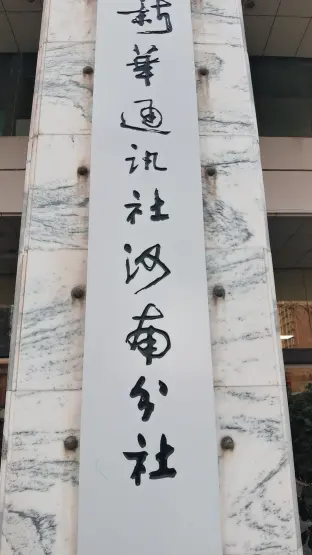 新華通讯社海南分社